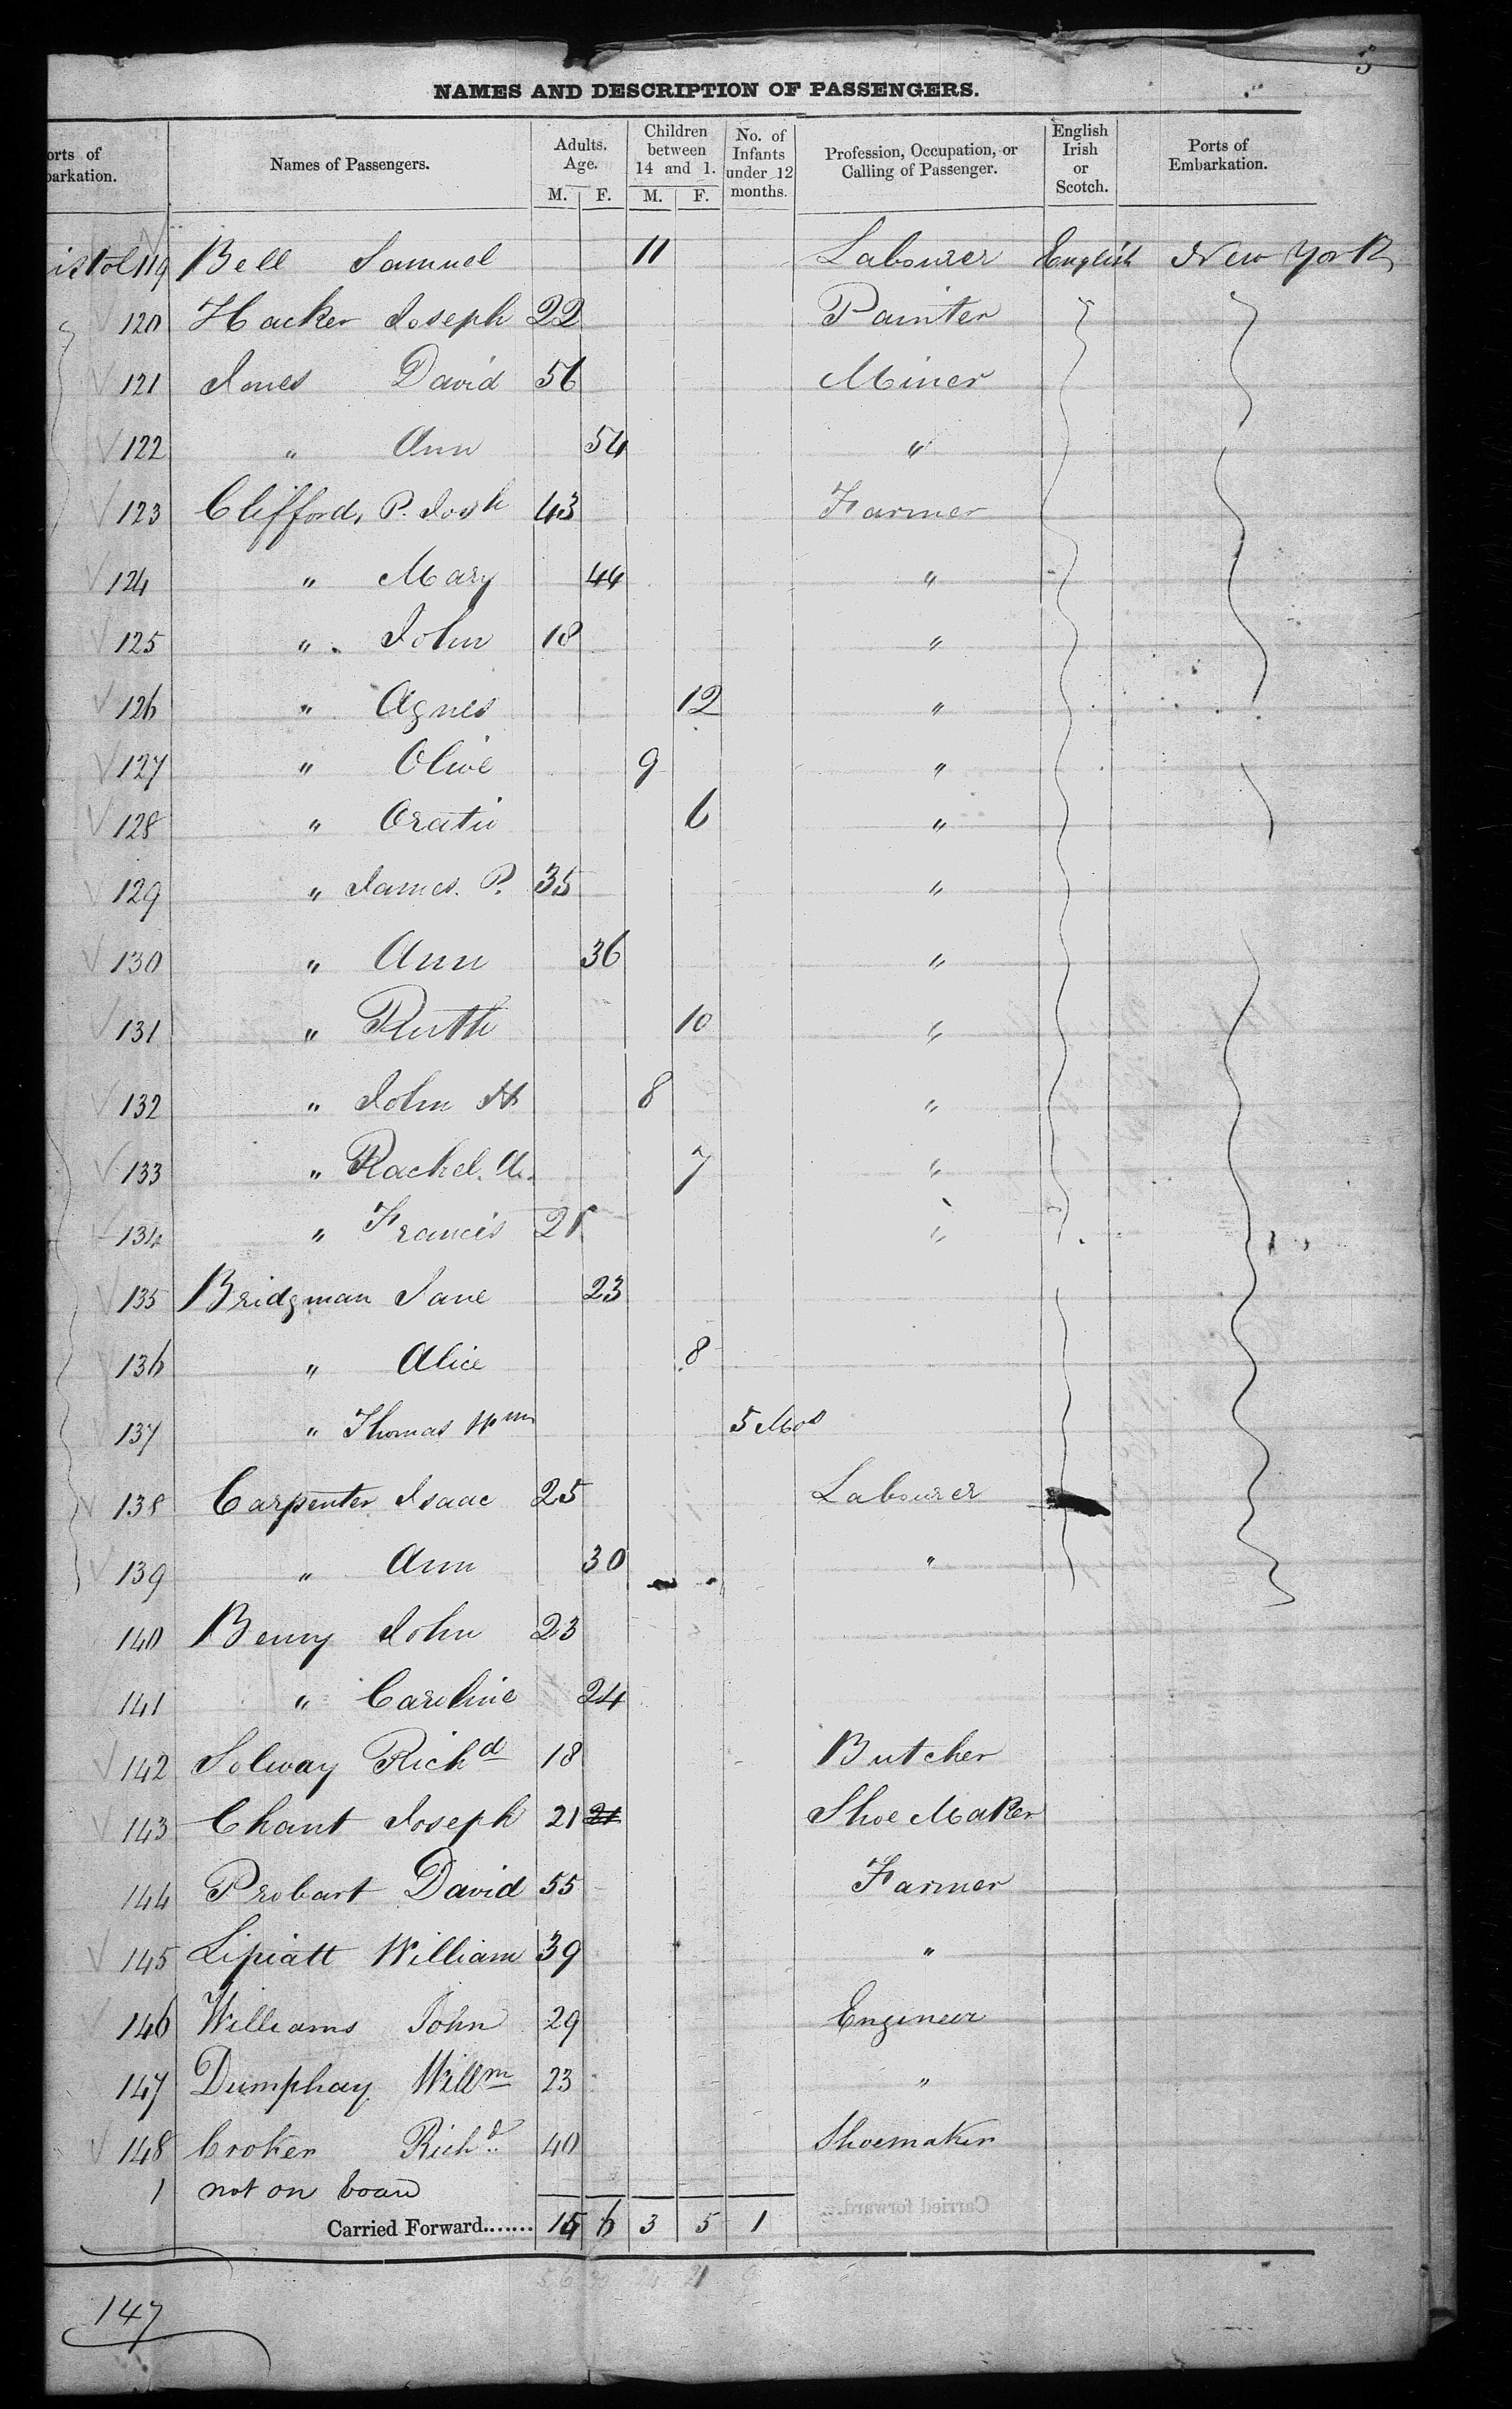 5
NAMES AND DESCRIPTION OF PASSENGERS.
orts of barkation. Names of Passengers. Adults. Age. M. F. Children between 14 and 1. M. F. No. of Infants under 12 months. Profession, Occupation, or Calling of Passenger. English Irish or Scotch. Ports of Embarkation.
istol 119 Bell Samuel 11 Labourer English New York
120 Hacker Joseph 22 Painter
121 Jones David 56 Miner
122 " Ann 54 "
123 Clifford, P. Josh 43 Farmer
124 " Mary 44 "
125 " John 18 "
126 " Agnes 12 "
127 " Olive 9 "
128 " Oratio 6 "
129 " James. P. 35 "
130 " Ann 36 "
131 " Ruth 10 "
132 " John H 8 "
133 " Rachel. A. 7 "
134 " Francis 21 "
135 Bridgman Jane 23
136 " Alice 8
137 " Thomas Wm 5 Mos
138 Carpenter Isaac 25 Labourer
139 " Ann 30 "
140 Benny John 23
141 " Caroline 24
142 Solway Richd 18 Butcher
143 Chant Joseph 21 21 Shoe Maker
144 Probart David 55 Farmer
145 Lipiatt William 39 "
146 Williams John 29 Engineer
147 Dumphay Willm 23 "
148 Croker Richd 40 Shoemaker
1 not on board
Carried Forward....... 15 6 3 5 1
147